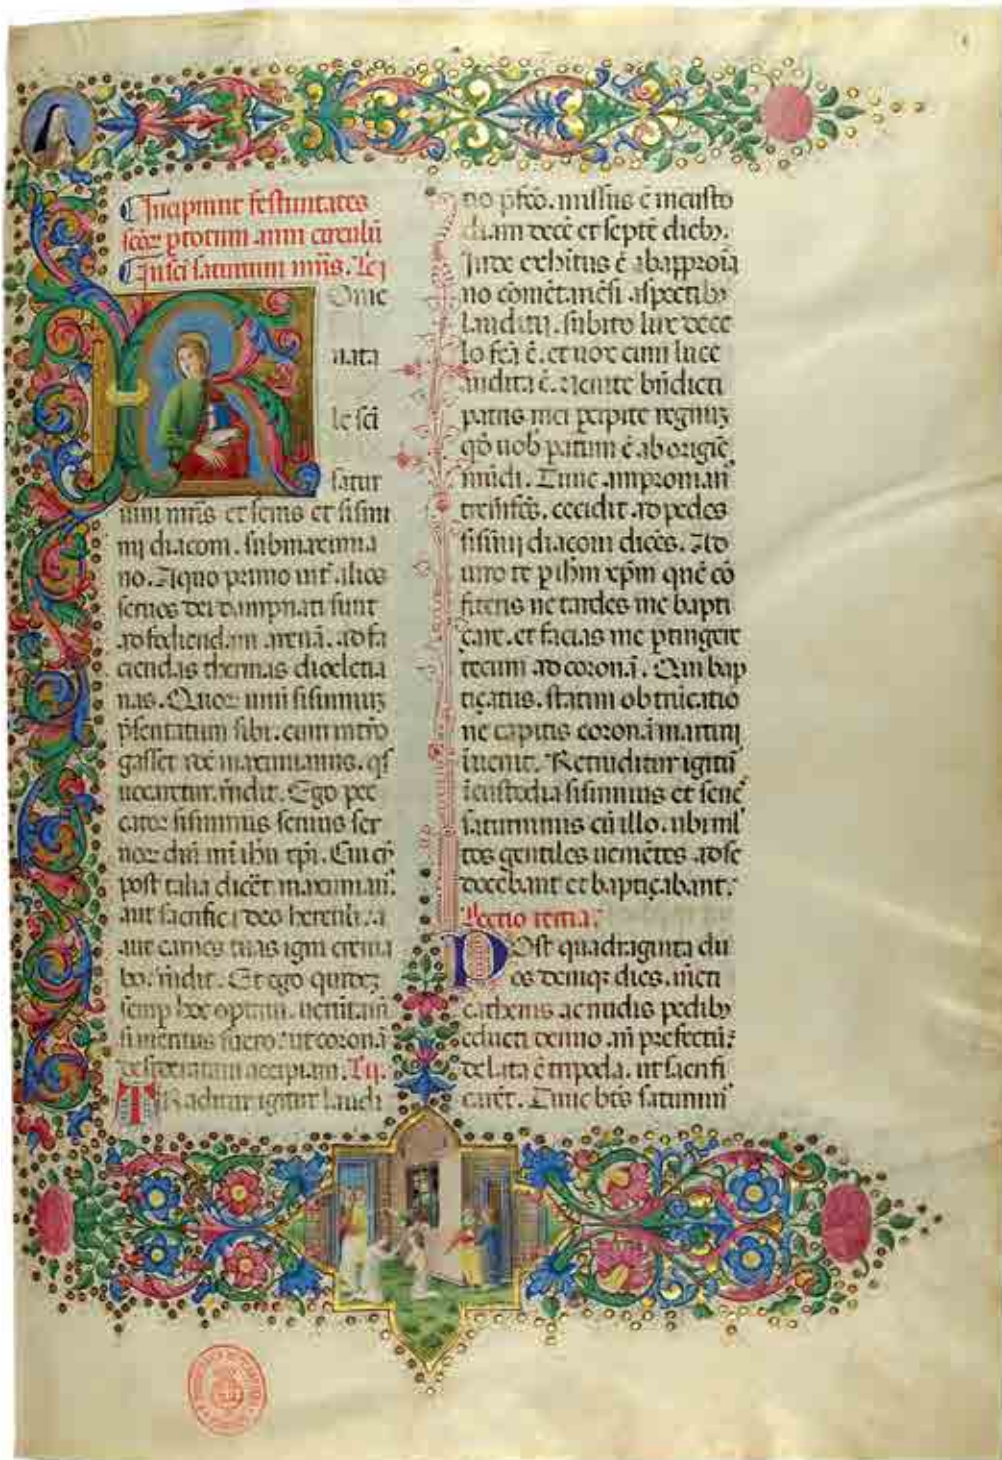 Incipiunt festiuitates
scõꝝ p totum anni circulũ
In sc̃i saturnini mr̃is. Lc̃ı
Rome
nata
le sc̃i
satur
nini mr̃is et senis et sisini
ni diaconi. sub maximia
no. A quo primo int̃ alios
seruos dei dampnati sunt
ad fodiendam arenã. ad fa
ciendas thermas dioclecia
nas. Quoꝝ unũ sisinniuȝ
p̃sentatum sibi. cum int̃ro
gasset rex maximianus. q̃s
uocaretur. r̃ndit. Ego pec
cator sisinnius seruus ser
uoꝝ dñi nr̃i ihu xp̃i. Cui cũ
post talia dicẽt maximian᾽.
aut sacrifica deo herculi. a
aut carnes tuas igni crema
bo. r̃ndit. Et ego quideȝ
semp hoc optaui. uerũtam̃
si meritus fuero. ut coronã
desideratam accipiam. Lc̃. ij.
Traditur igitur laudi
no p̃fc̃o. missus ẽ in custo
diam decẽ et septẽ dieb᾽.
Inde exhibitus ẽ ab aproia
no cõmẽtariẽsi aspectib᾽
laudicij. subito lux de ce
lo fc̃a ẽ. et uox cum luce
audita ẽ. Uenite bñdicti
patris mei percipite regnuȝ
qd̃ uob̃ paratum ẽ ab origĩe
mũdi. Tunc aproniaĩ
tremẽs. cecidit ad pedes
sisinij diaconi dicẽs. Ad
iuro te p ihm xp̃m quẽ cõ
fiteris ne tardes me bapti
çare. et facias me ptingere
tecum ad coronã. Qui bap
tiçatus. statim obtrucatio
ne capitis coronã martirij
ĩuenit. Retruditur igitur
ĩ custodia sisinnius et senex
saturninus cũ illo. ubi ml̃
tos gentiles ueniẽtes ad se
docebant et baptiçabant.
Lectio tertia.
Post quadraginta du
os deniqȝ dies. uincti
cathenis ac nudis pedib᾽
educti denuo añ prefectũ.
delata ẽ tripoda. ut sacrifi
carẽt. Tunc bt̃s saturnin᾽